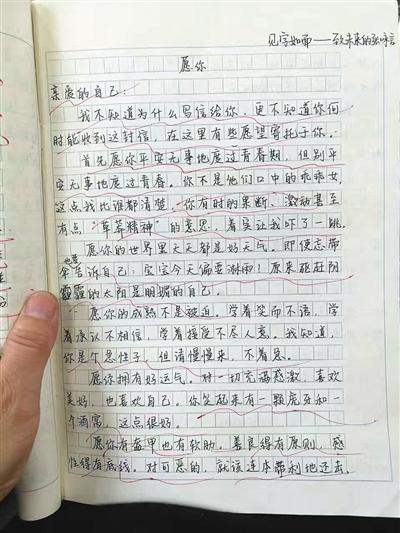 见字如面——致未来的张咪信
愿你
亲爱的自己：
我不知道为什么写信给你，更不知道你何
时能收到这封信，在这里有些愿望寄托于你。
首先愿你平安无事地度过青春期，但别平
安无事地度过青春。你不是他们口中的乖乖女，
这点我比谁都清楚。你有时的果断、激动甚至
有点“草莽精神”的意思，着实让我吓了一跳。
愿你的世界里天天都是好天气。即便忘带
伞也要告诉自己：宝宝今天偏要淋雨！原来驱赶阴
霾的太阳是明媚的自己。
愿你的成熟不是被迫。学着笑而不语，学
着承认不相信，学着接受不尽人意。我知道，
你是个急性子，但请慢慢来，不着急。
愿你拥有好运气。对一切充满感激，喜欢
美好，也喜欢自己。你笑起来有一颗虎牙和一
个酒窝，这点很好。
愿你有盔甲也有软肋。善良得有原则，感
性得有底线。对可恶的，就该连本带利地还击，